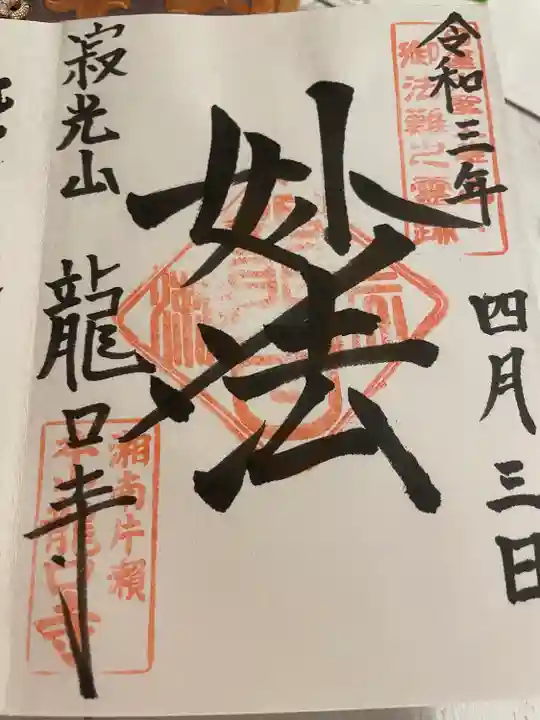 令和三年
四月三日
御法難之霊跡
妙法
寂光山
龍口寺
湘南片瀬
本山龍口寺